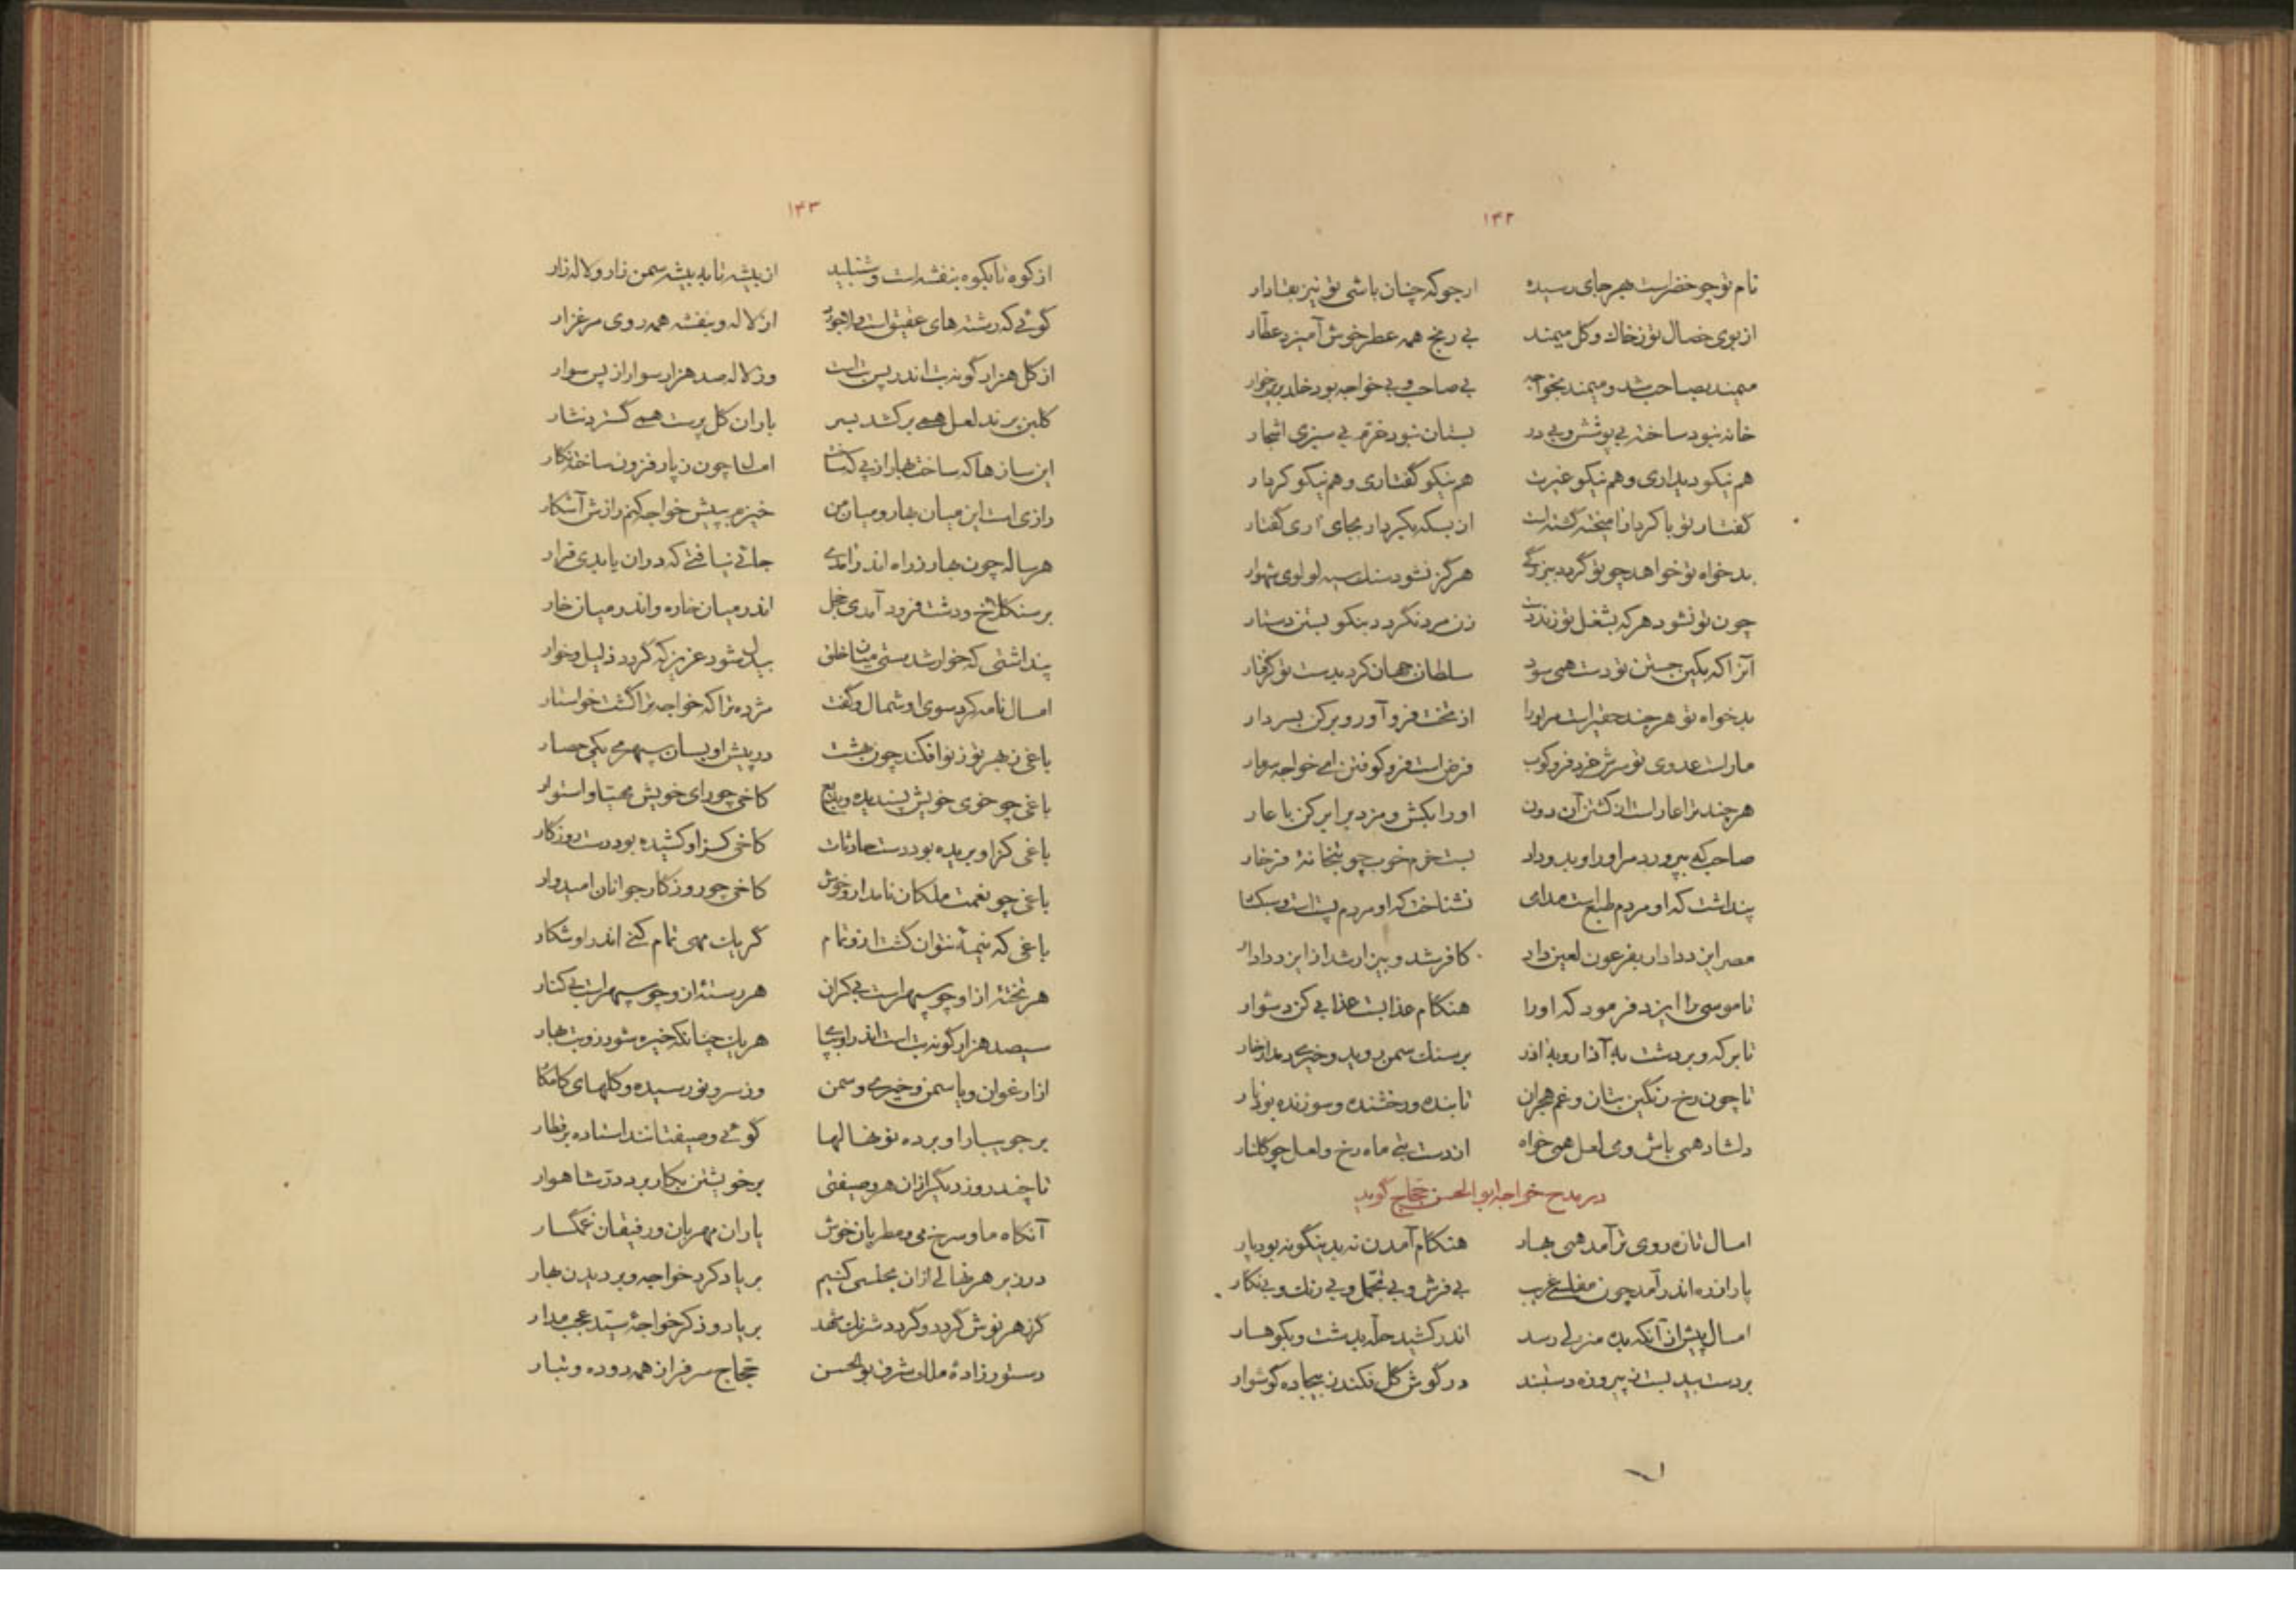 ۱۴۲
نام تو چو خضرست بهر جای رسیده ارجو که چنان باشی تو نیز بقادار
از بوی خصال تو ز خاک و گل میمند بی رنج همه عطر خوش آمیزد عطار
میمند بصاحب شد و میمند بخواجه بی صاحب و بی خواجه بود خلد برین خوار
خانه نبود ساخته بی پوشش و بی در بستان نبود خرم بی سبزی اشجار
هم نیکو دیداری و هم نیکو عشرت هم نیکو گفتاری و هم نیکو کردار
گفتار تو با کردار آمیخته گشته است از بسکه بکردار بجای آری گفتار
بدخواه تو خواهد چو تو گردد ببزرگی هرگز نشود سنگ سیه لولوی شهوار
چون تو نشود هر که بشغل تو زند دست زن مرد نگردد بنکو بستن دستار
آنرا که بکین جستن تو دست همی سود سلطان جهان کرد بدست تو گرفتار
بدخواه تو هر چند حقیر است مر اورا از تخت فرو آور و بر کن بسر دار
مار است عدوی تو سرش خرد فرو کوب فرض است فرو کوفتن ای خواجه سر مار
هر چند ترا عار است از کشتن آن دون او را بکش و مزد برابر کن با عار
صاحب که بپرورد مر او را و بدو داد بست خرم خوب چو بتخانهٔ فرخار
پنداشت که او مردم طبع است نشناخت که او مردم پست است و سبکسار
مصر ایزد دادار بفرعون لعین داد کافر شد و بیزار شد از ایزد دادار
تا موسی را ایزد فرمود که او را هنگام عذابست عذابی کن دشوار
تا بر که و بر دشت به آذار و به آذر بر سنگ سمن روید و خیری دمد از خار
تا چون رخ رنگین بتان و غم هجران تابنده و رخشنده و سوزنده بود نار
دلشاد همی باش و می لعل همی خواه از دست بتی ماه رخ و لعل چو گلنار
در مدح خواجه ابو الحسن حجاج گوید
امسال تازه روی تر آمد همی بهار هنگام آمدن نه بدینگونه بود پار
پار از ره اندر آمد چون مفلسی غریب بی فرش و بی تجمل و بی رنگ و بی نگار
امسال پیش از آنکه بده منزلی رسد اندر کشید حله بدشت و بکوهسار
بر دست بید بست ز پیروزه دستبند در گوش گل فکند ز بیجاده گوشوار
۱۴۳
از کوه تا بکوه بنفشه است و شنبلید از بیشه تا به بیشه سمن زار و لاله زار
گوئی که رشته های عقیق است و لاجورد از لاله و بنفشه همه روی مرغزار
از گل هزار گونه بت اندر پس بت است وز لاله صد هزار سوار از پس سوار
گلبن پرند لعل همی برکشد بسر باران گل پرست همی گسترد نثار
این سازها که ساخت بهار از پی که ساخت امسال چون ز پار فزون ساخته نگار
رازی است این میان بهار و میان من خیزم به پیش خواجه کنم رازش آشکار
هر ساله چون بهار ز راه اندر آمدی جائی نیافتی که در آن یابدی قرار
بر سنگلاخ و دشت فرود آمدی خجل اندر میان خاره و اندر میان خار
پنداشتی که خوار شدستی میان خلق بیدل شود عزیز که گردد ذلیل و خوار
امسال نامه کرد سوی او شمال و گفت مژده ترا که خواجه ترا گشت خواستار
باغی ز بهر تو ز نو افکند چون بهشت در پیش او بسان سپهری یکی حصار
باغی چو خوی خویش پسندیده و بدیع کاخی چو رای خویش مهیا و استوار
باغی کز او بریده بود دست حادثات کاخی کز او کشیده بود دست روزگار
باغی چو نعمت ملکان نامدار و خوش کاخی چو روزگار جوانان امیدوار
باغی که نیمهٔ نتوان گشت ازو تمام گر یک مهی تمام کنی اندر او شکار
هر تخته از او چو سپهر است بی کران هر دسته از و چو سپهر است بی کنار
سیصد هزار گونه بت است اندر او بپا هر یک چنانکه خیره شود زو بت بهار
از ارغوان و یاسمن و خیری و سمن وز سرو نو رسیده و گلهای کامکار
بر جویبار او برده نو نهالها گوئی وصیفتانند استاده بر قطار
تا چند روز دیگر از آن هر وصیفتی بر خویشتن بکار برد در شاهوار
آنگاه ما و سرخ می و مطربان خوش یاران مهربان و رفیقان غمگسار
در زیر هر نهالی از آن مجلسی کنیم بر یاد کرد خواجه و بر دیدن بهار
گر زهر نوش گردد و گردد شرنگ شهد بر یاد و ذکر خواجهٔ سید عجب مدار
دستور زادهٔ ملک شرق بو الحسن حجاج سر فراز همه دوده و تبار